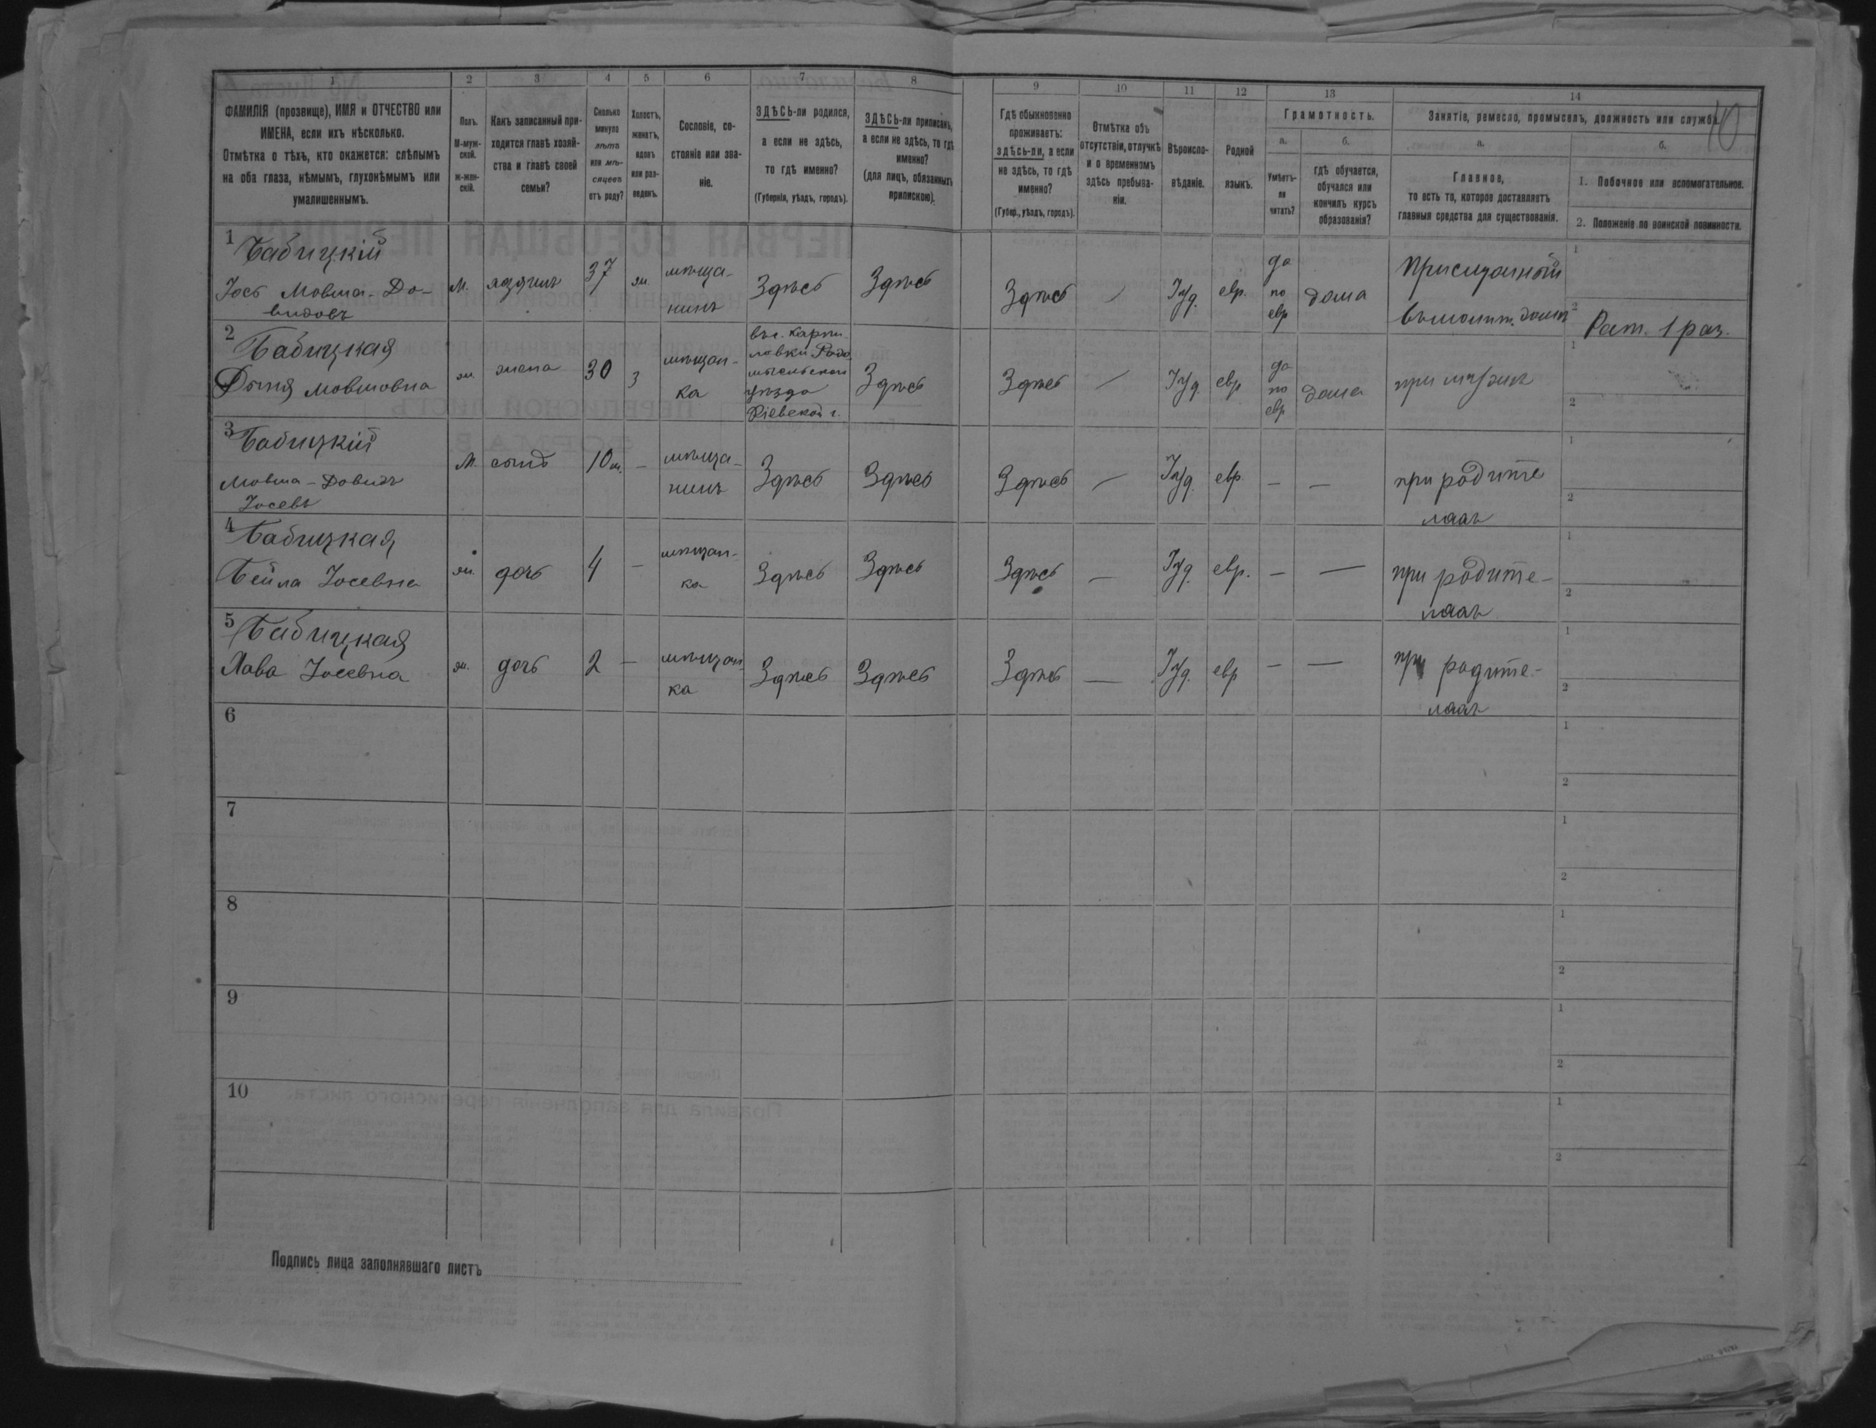 1 2 3 4 5 6 7 8 9 10 11 12 13 14
10
ФАМИЛІЯ (прозвище), ИМЯ и ОТЧЕСТВО или
ИМЕНА, если ихъ нѣсколько.
Отмѣтка о тѣхъ, кто окажется: слѣпымъ
на оба глаза, нѣмымъ, глухонѣмымъ или
умалишеннымъ.
Полъ.
М-муж-
ской.
Ж-жен-
скій.
Какъ записанный при-
ходится главѣ хозяй-
ства и главѣ своей
семьи?
Сколько
минуло
лѣтъ
или мѣ-
сяцевъ
отъ роду?
Холостъ,
женатъ,
вдовъ
или раз-
веденъ.
Сословіе, со-
стояніе или зва-
ніе.
ЗДѢСЬ-ли родился,
а если не здѣсь,
то гдѣ именно?
(Губернія, уѣздъ, городъ).
ЗДѢСЬ-ли приписанъ,
а если не здѣсь, то гдѣ
именно?
(для лицъ, обязанныхъ
припискою).
Гдѣ обыкновенно
проживаетъ:
здѣсь-ли, а если
не здѣсь, то гдѣ
именно?
(Губер., уѣздъ, городъ).
Отмѣтка объ
отсутствіи, отлучкѣ
и о временномъ
здѣсь пребыва-
ніи.
Вѣроиспо-
вѣданіе.
Родной
языкъ.
Грамотность.
а.
Умѣетъ-
ли
читать?
б.
гдѣ обучается,
обучался или
кончилъ курсъ
образованія?
Занятіе, ремесло, промыселъ, должность или служба.
а.
Главное,
то есть то, которое доставляетъ
главныя средства для существованія.
б.
1. Побочное или вспомогательное.
2. Положеніе по воинской повинности.
1 Бабицкій
Іось Мовша-До-
видовъ
М. хозяинъ 37 ж. мѣща-
нинъ
Здѣсь Здѣсь Здѣсь / Іуд. евр. да
по
евр
дома
1
2 Рат. 1 раз.
2 Бабицкая
Мовшовна
ж. жена 30 з мѣщан-
ка
уѣзда
Кіевской г.
Здѣсь Здѣсь / Іуд. евр да
по
евр
дома при мужѣ
1
2
3 Бабицкій
Мовша-Довидъ
Іосевъ
М. сынъ 10 м. – мѣща-
нинъ
Здѣсь Здѣсь Здѣсь – Іуд. евр. – – при родите
ляхъ
1
2
4 Бабицкая
Бейла Іосевна
ж. дочь 4 – мѣщан-
ка
Здѣсь Здѣсь Здѣсь – Іуд. евр. – – при родите-
ляхъ
1
2
5 Бабицкая
Хава Іосевна
ж. дочь 2 – мѣщан
ка
Здѣсь Здѣсь Здѣсь – Іуд. евр – – при родите-
ляхъ
1
2
6
1
2
7
1
2
8
1
2
9
1
2
10
1
2
Подпись лица заполнявшаго листъ